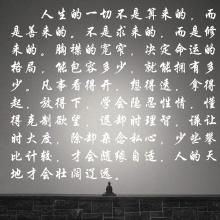 人生的一切不是算来的，而
是善来的。不是求来的，而是修
来的。胸襟的宽窄，决定命运的
格局，能包容多少，就能拥有多
少。凡事看得开，想得透，拿得
起，放得下，学会隐忍性情，懂
得克制欲望，遇却时理智，谦让
时大度，除却杂念私心，少些攀
比计较，才会随缘自适，人的天
地才会壮阔辽远。